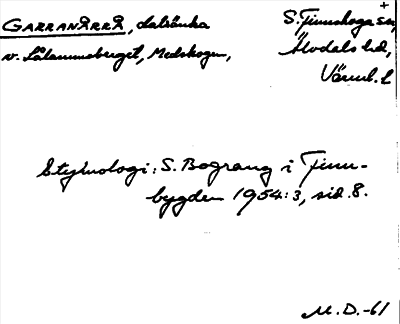 GARRANÅRRÅ, dalsänka
v. Låtammsberget, Medskogen,
S. Finnskoga sn,
Älvdals hd,
Värml. l
Etymologi: S. Bograng i Finn-
bygden 1954:3, sid. 8.
M.D.-61